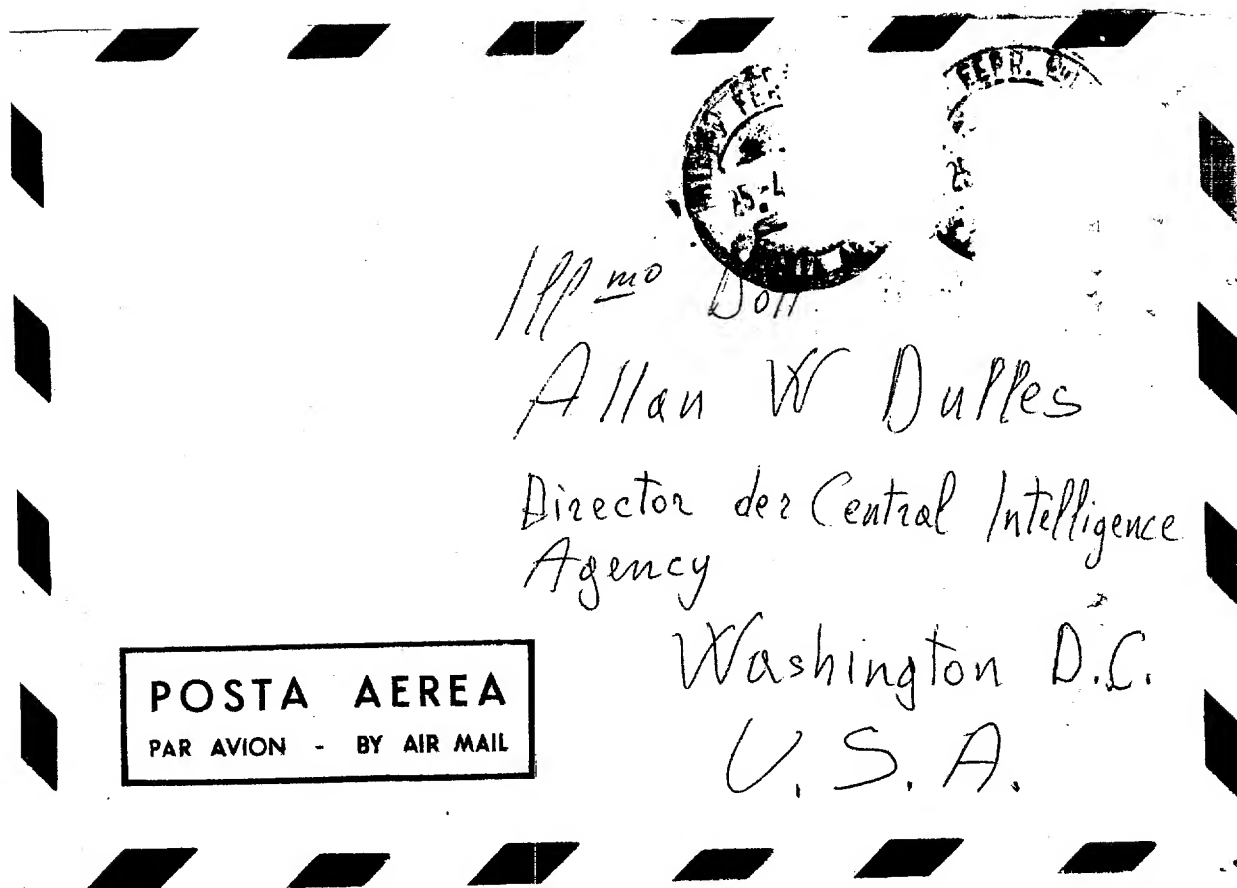 FERR.
25.
Ill mo Dott.
Allan W Dulles
Director der Central Intelligence
Agency
Washington D.C.
U.S.A.
POSTA AEREA
PAR AVION - BY AIR MAIL